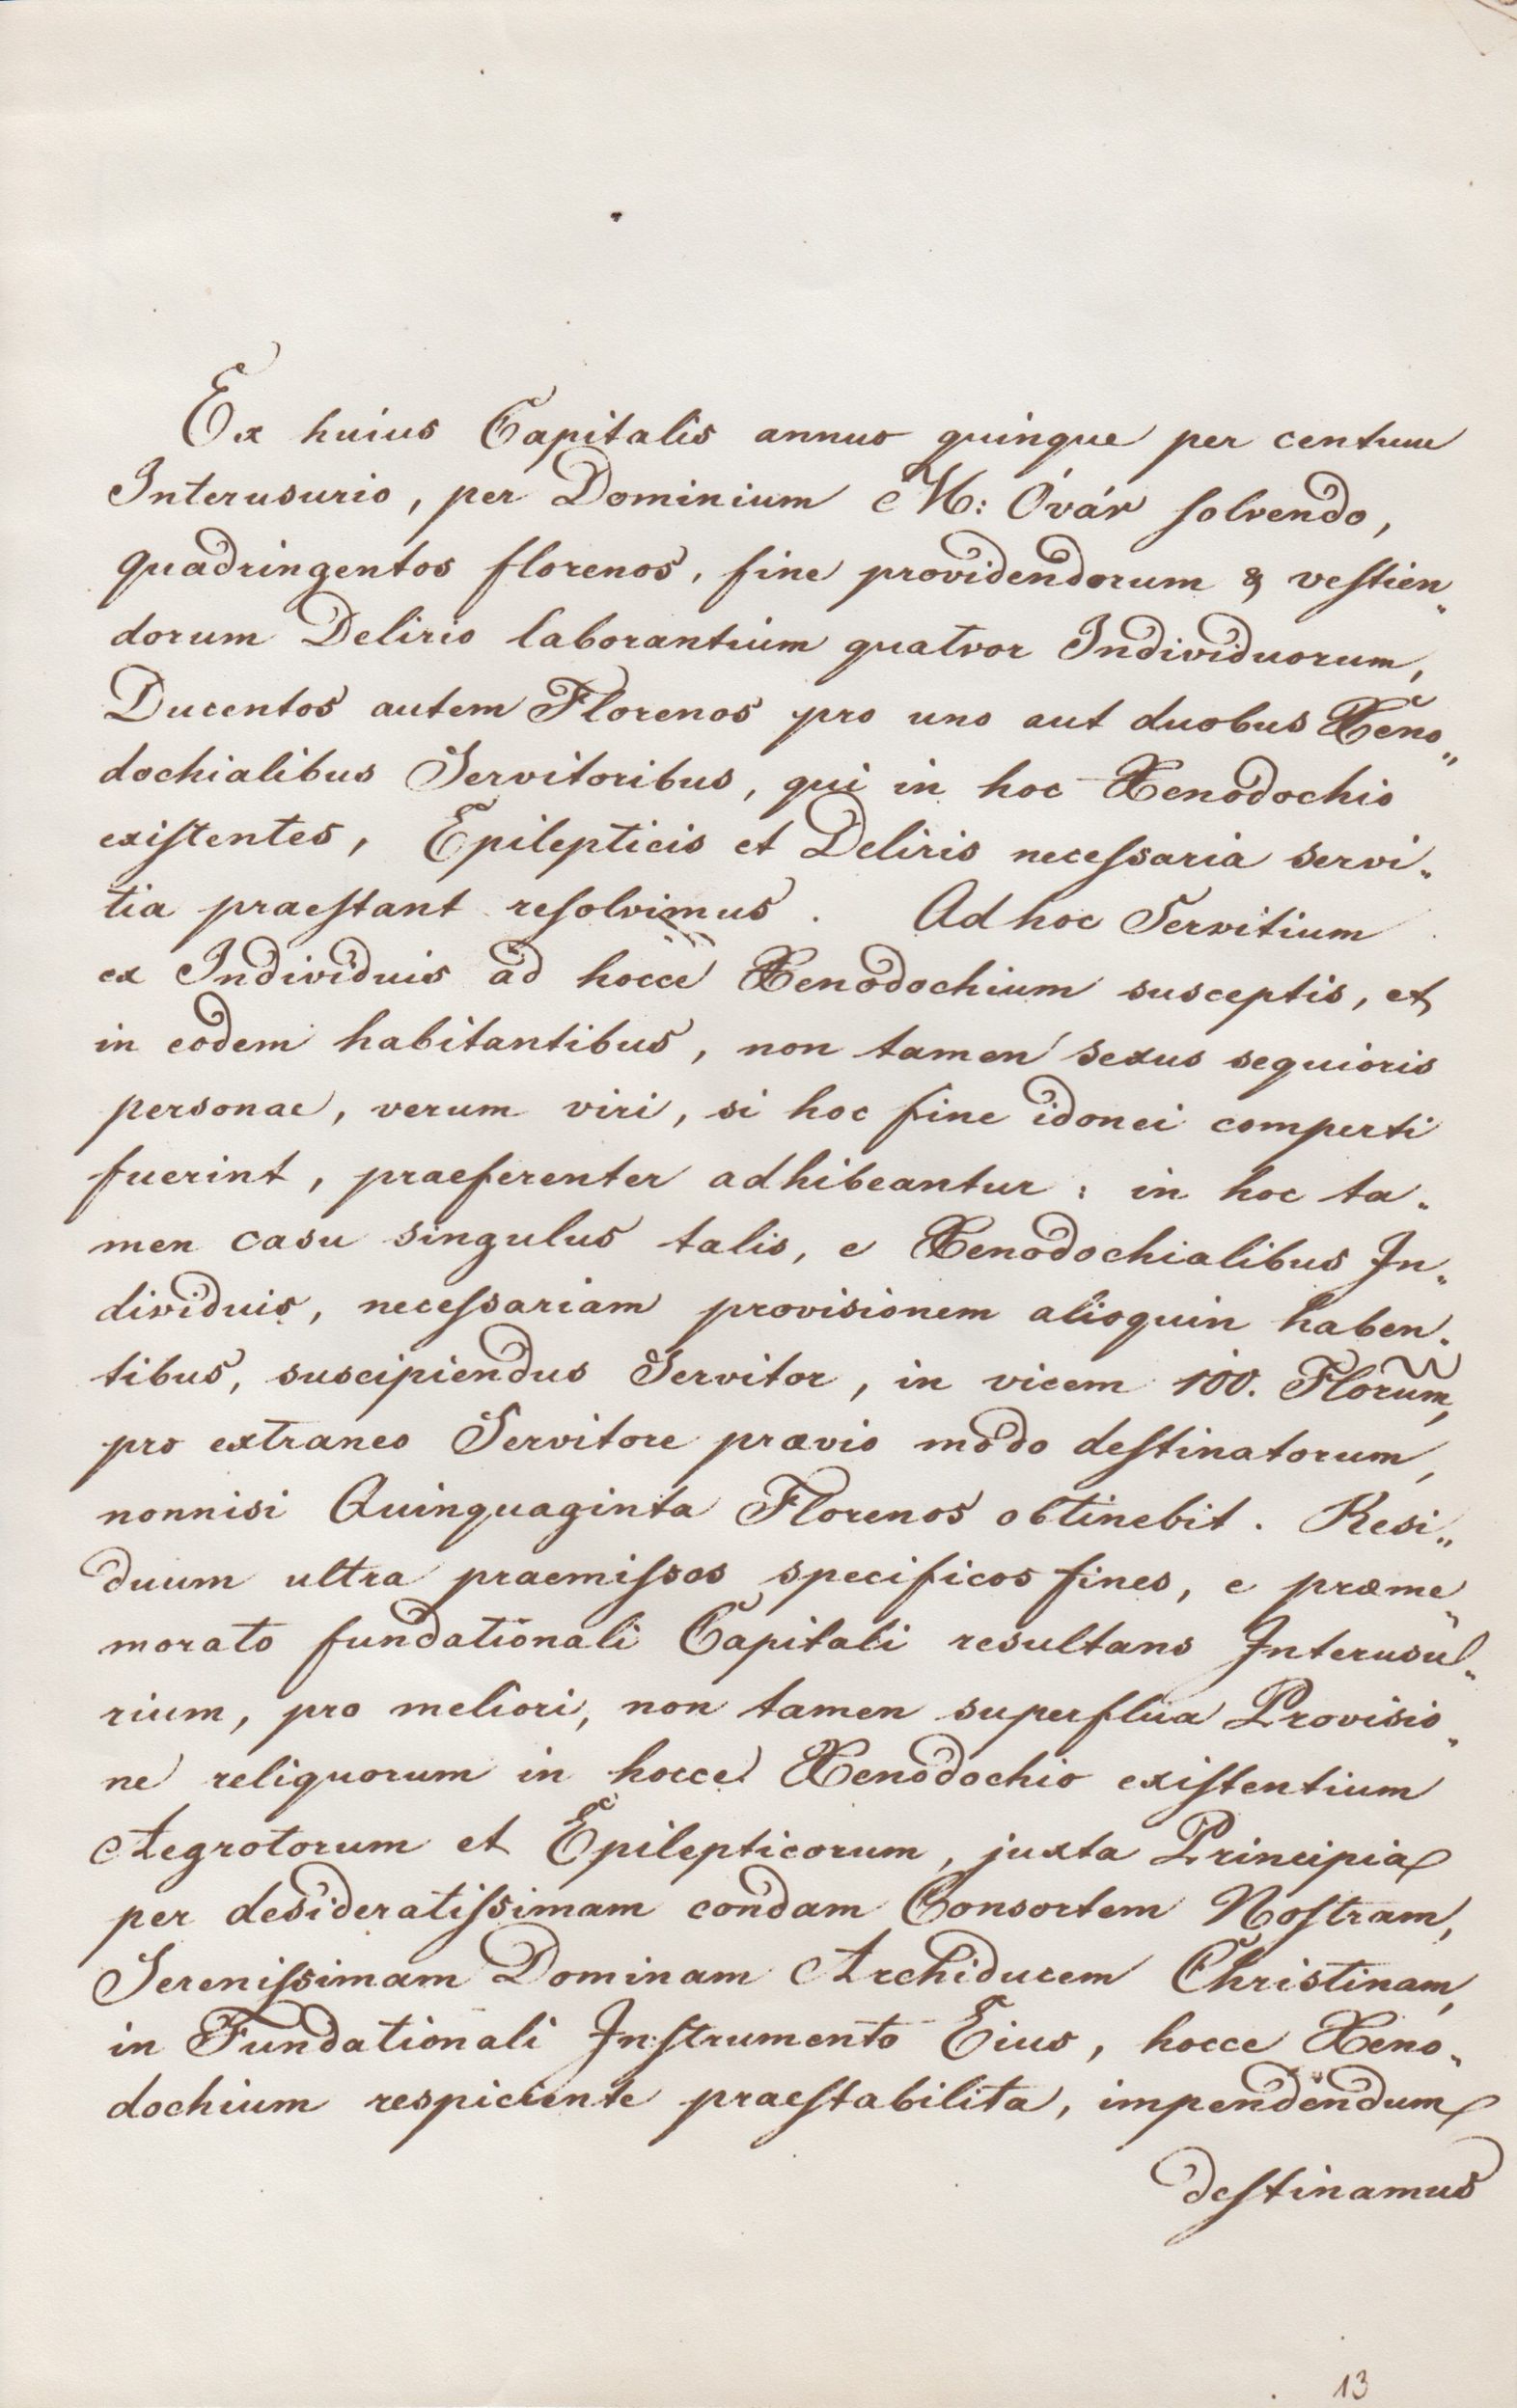 Ex huius Capitalis annuo quinque per centum
Interusurio, per Dominium M: Óvár solvendo,
quadringentos florenos, fine providendorum & vestien„
dorum Delirio laborantium quatvor Individuorum,
Ducentos autem Florenos pro uno aut duobus Xeno„
dochialibus Servitoribus, qui in hoc Xenodochio
existentes, Epilepticis et Deliris necessaria servi„
tia praestant resolvimus. Ad hoc Servitium
ex Individuis ad hocce Xenodochium susceptis, et
in eodem habitantibus, non tamen sexus sequioris
personae, verum viri, si hoc fine idonei comperti
fuerint, praeferenter adhibeantur: in hoc ta„
men casu singulus talis, e Xenodochialibus In„
dividuis, necessariam provisionem alioquin haben„
tibus, suscipiendus Servitor, in vicem 100. Florum,
pro extraneo Servitore praevio modo destinatorum,
nonnisi Quinquaginta Florenos obtinebit. Resi„
duum ultra praemissos specificos fines, e praeme„
morato fundationali Capitali resultans Interusu„
rium, pro meliori, non tamen superflua Provisio„
ne reliquorum in hocce Xenodochio existentium
Aegrotorum et Epilepticorum, juxta Principia
per desideratissimam condam Consortem Nostram,
Serenissimam Dominam Archiducem Christinam,
in Fundationali Instrumento Eius, hocce Xeno„
dochium respiciente praestabilita, impendendum
destinamus
13